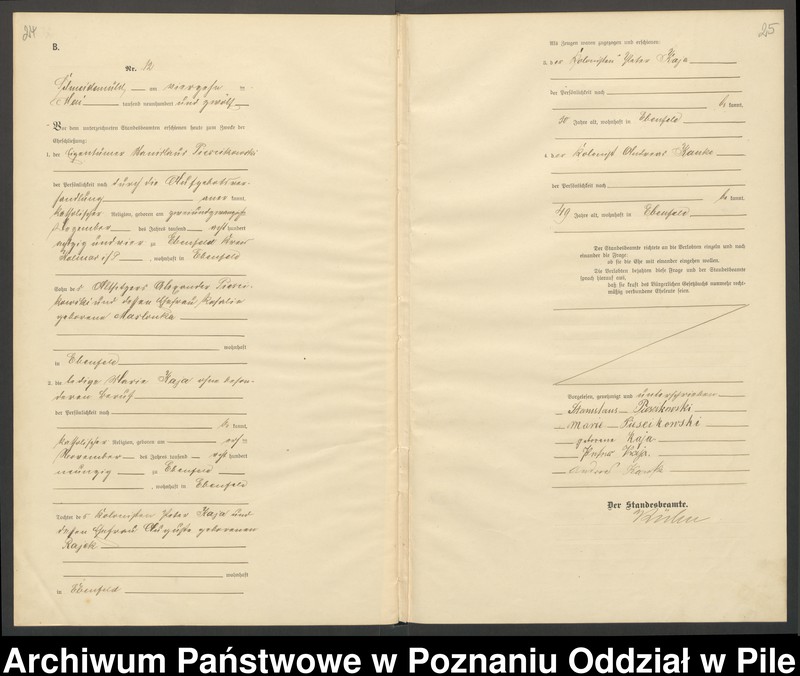 24
B.
Nr. 12
Schneidemühl, am vierzehn ten
Mai tausend neunhundert und zwölf
Vor dem unterzeichneten Standesbeamten erschienen heute zum Zwecke der
Eheschließung:
1. der Eigentümer Stanislaus
der Persönlichkeit nach durch die Aufgebotsver-
handlung aner kannt,
katholischer Religion, geboren am zweiundzwanzigsten
Dezember des Jahres tausend acht hundert
achtzig und vier zu Ebenfeld Kreis
Kolmar i/P, wohnhaft in Ebenfeld
Sohn des Altsitzers Alexander
und dessen Ehefrau Rosalie
geborene Maslonka
wohnhaft
in Ebenfeld
2. die ledige Maria Kaja ohne beson-
deren Beruf
der Persönlichkeit nach
be kannt,
katholischer Religion, geboren am ach ten
November des Jahres tausend acht hundert
neunzig zu Ebenfeld
, wohnhaft in Ebenfeld
Tochter des Kolonisten Peter Kaja und
dessen Ehefrau Auguste geborenen
Kajek
wohnhaft
in Ebenfeld
25
Als Zeugen waren zugezogen und erschienen:
3. der Kolonist Peter Kaja
der Persönlichkeit nach
be kannt,
50 Jahre alt, wohnhaft in Ebenfeld
4. der Kolonist Andreas Kanke
der Persönlichkeit nach
be kannt,
49 Jahre alt, wohnhaft in Ebenfeld
Der Standesbeamte richtete an die Verlobten einzeln und nach
einander die Frage:
ob sie die Ehe mit einander eingehen wollen.
Die Verlobten bejahten diese Frage und der Standesbeamte
sprach hierauf aus,
daß sie kraft des Bürgerlichen Gesetzbuchs nunmehr recht-
mäßig verbundene Eheleute seien.
Vorgelesen, genehmigt und unterschrieben
Stanislaus
Maria
geborene Kaja
Peter Kaja
Andreas
Der Standesbeamte.
Archiwum Państwowe w Poznaniu Oddział w Pile